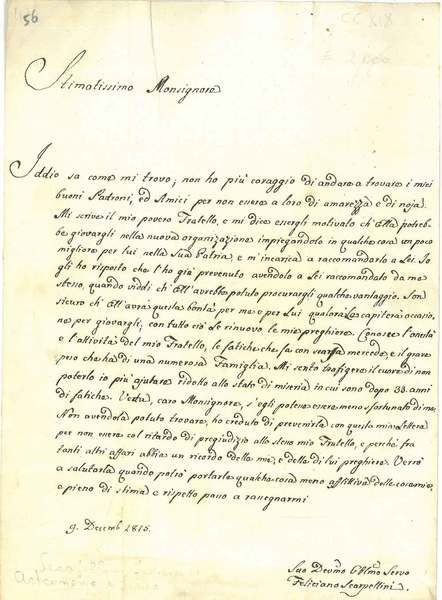 56
Stimatissimo Monsignore
Iddio sa come mi trovo; non ho più coraggio di andare a trovare i miei
buoni Padroni, ed Amici per non essere a loro di amarezza e di noja.
Mi scrive il mio povero Fratello, e mi dice essergli motivato ch'Ella potreb=
be giovargli nella nuova organizazione impiegandolo in qualche cosa un poco
migliore per lui nella Sua Patria, e m'incarica a raccomandarlo a Lei. Io
gli ho risposto che l'ho già prevenuto avendolo a Lei raccomandato da me
stesso, quando viddi ch'Ell'avrebbe potuto procurargli qualche vantaggio. Son
sicuro ch'Ell'avrà questa bontà per me e per Lui qualora Le capiterà occasio=
ne per giovargli; con tutto ciò Le rinuovo le mie preghiere. Conosce l'onestà
e l'attività del mio Fratello, le fatiche che fa con scarsa mercede, e il grave
peso che ha di una numerosa Famiglia. Mi sento trafigere il cuore di non
poterlo io più ajutare ridotto allo stato di miseria in cui sono dopo 33. anni
di fatiche. Veda, caro Monsignore, s'egli poteva essere meno fortunato di me.
Non avendola potuto trovare, ho creduto di prevenirla con questa mia Lettera
per non essere col ritardo di pregiudizio allo stesso mio Fratello, e perchè fra
tanti altri affari abbia un ricordo delle mie, e delle di lui preghiere. Verrò
a salutarla quando potrò portarle qualche cosa meno afflittiva delle cose mie,
e pieno di stima e rispetto passo a rassegnarmi
9. Decemb 1815.
Suo Devmo Obbmo Servo
Feliciano Scarpellini